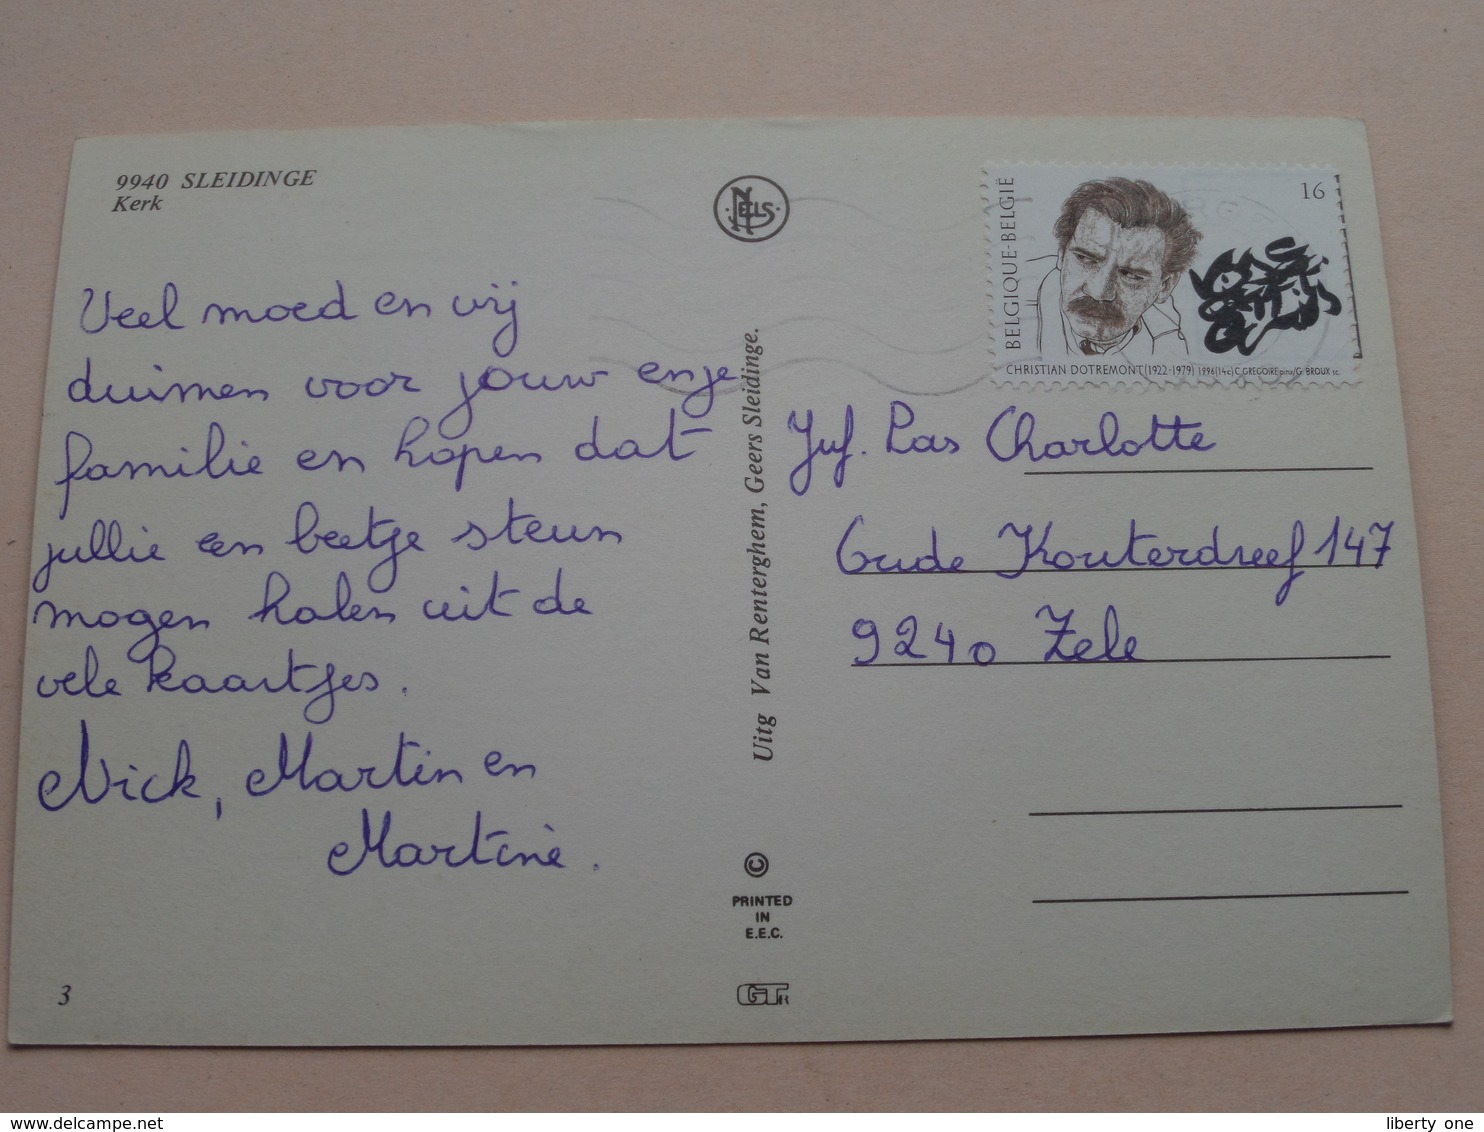 9940 SLEIDINGE
Kerk
NELS
BELGIQUE-BELGIË
16
CHRISTIAN DOTREMONT (1922-1979) 1996 (14c) C. GREGOIRE pinx/G. BROUX sc.
Veel moed en wij
duimen voor jouw en je
familie en hopen dat
jullie een beetje steun
mogen halen uit de
vele kaartjes.
Nick, Martin en
Martine.
Uitg Van Renterghem, Geers Sleidinge.
Juf. Pas Charlotte
Oude Kouterdreef 147
9240 Zele
©
PRINTED
IN
E.E.C.
3
liberty one